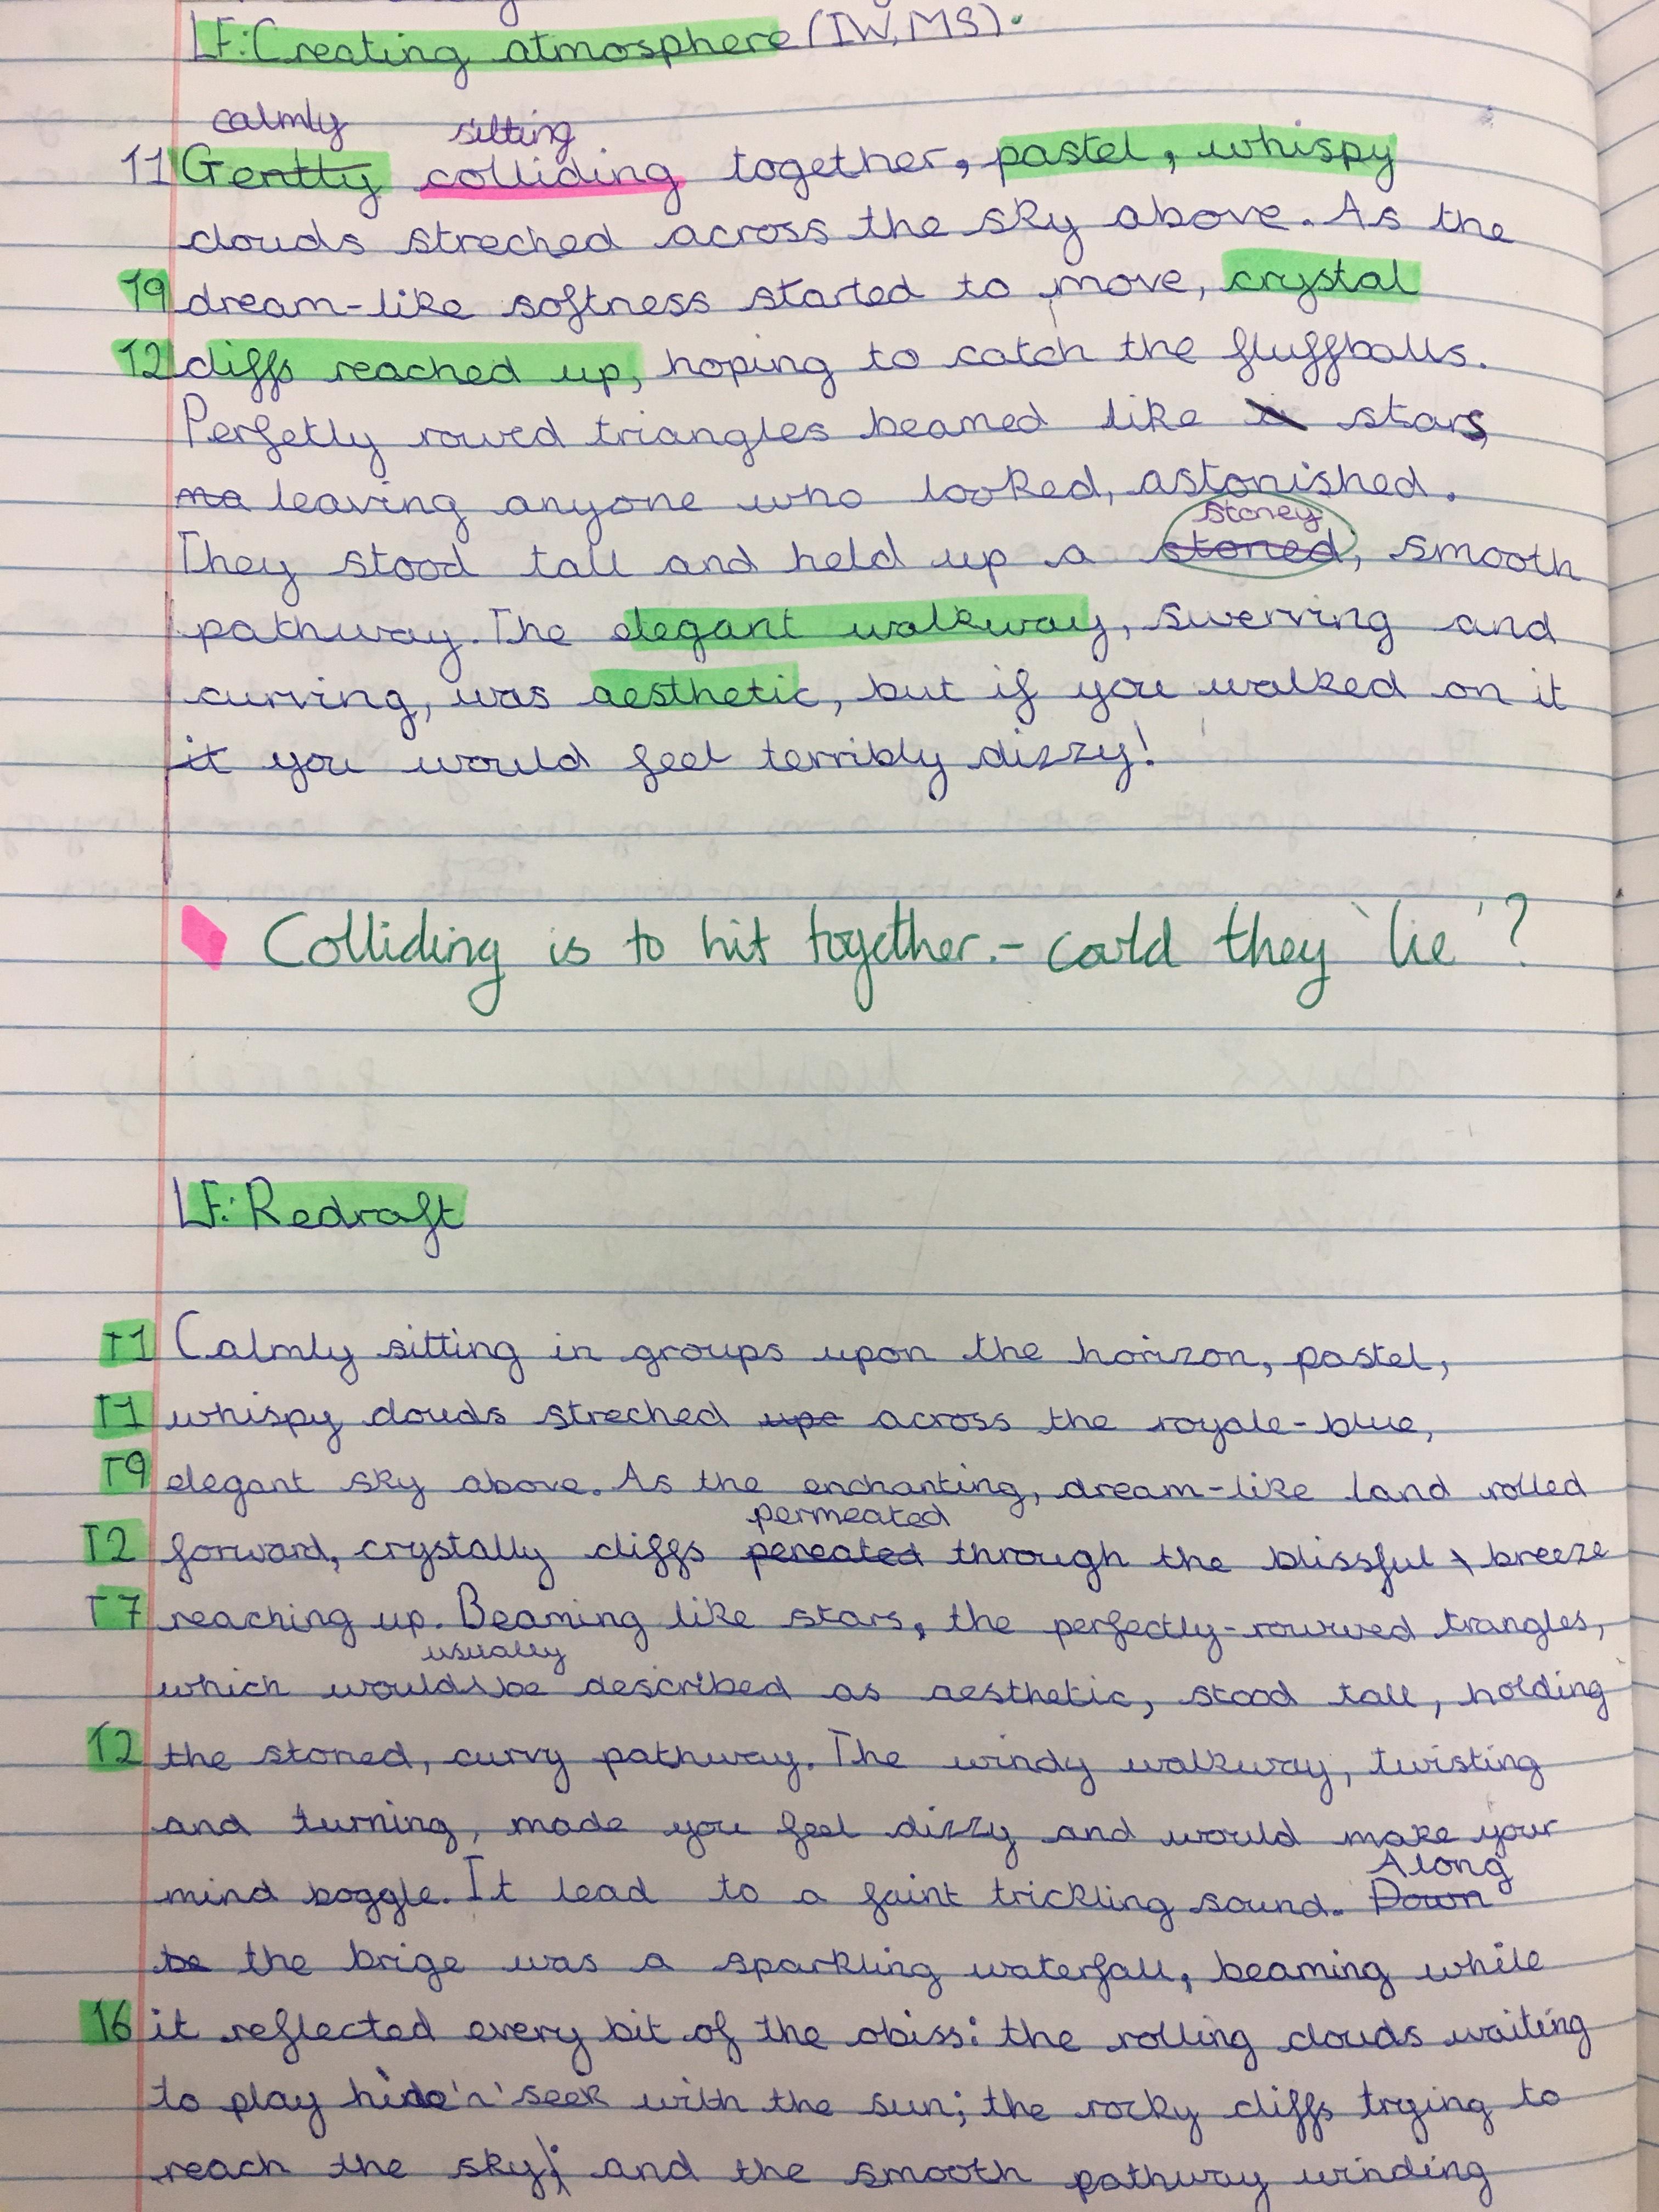 LF: Creating atmosphere (IW, MS).
calmly sitting
11 Gently colliding together, pastel, whispy
clouds streched across the sky above. As the
19 dream-like softness started to move, crystal
12 cliffs reached up, hoping to catch the fluffballs.
Perfetly rowed triangles beamed like a stars,
ma leaving anyone who looked, astonished.
stoney
They stood tall and held up a stoned, smooth
pathway. The elegant walkway, swerving and
curving, was aesthetic, but if you walked on it
it you would feel terribly dizzy!
Colliding is to hit together. - could they 'lie'?
LF: Redraft
T1 Calmly sitting in groups upon the horizon, pastel,
T1 whispy clouds streched upo across the royale-blue,
T9 elegant sky above. As the enchanting, dream-like land rolled
permeated
T2 forward, crystally cliffs pereated through the blissful breeze
T7 reaching up. Beaming like stars, the perfectly-rowwed trangles,
usually
which would be described as aesthetic, stood tall, holding
T2 the stoned, curvy pathway. The windy walkway, twisting
and turning, made you feel dizzy and would make your
mind boggle. It lead to a faint trickling sound. Down
Along
be the brige was a sparkling waterfall, beaming while
16 it reflected every bit of the obiss: the rolling clouds waiting
to play hide 'n' seek with the sun; the rocky cliffs trying to
reach the sky; and the smooth pathway winding